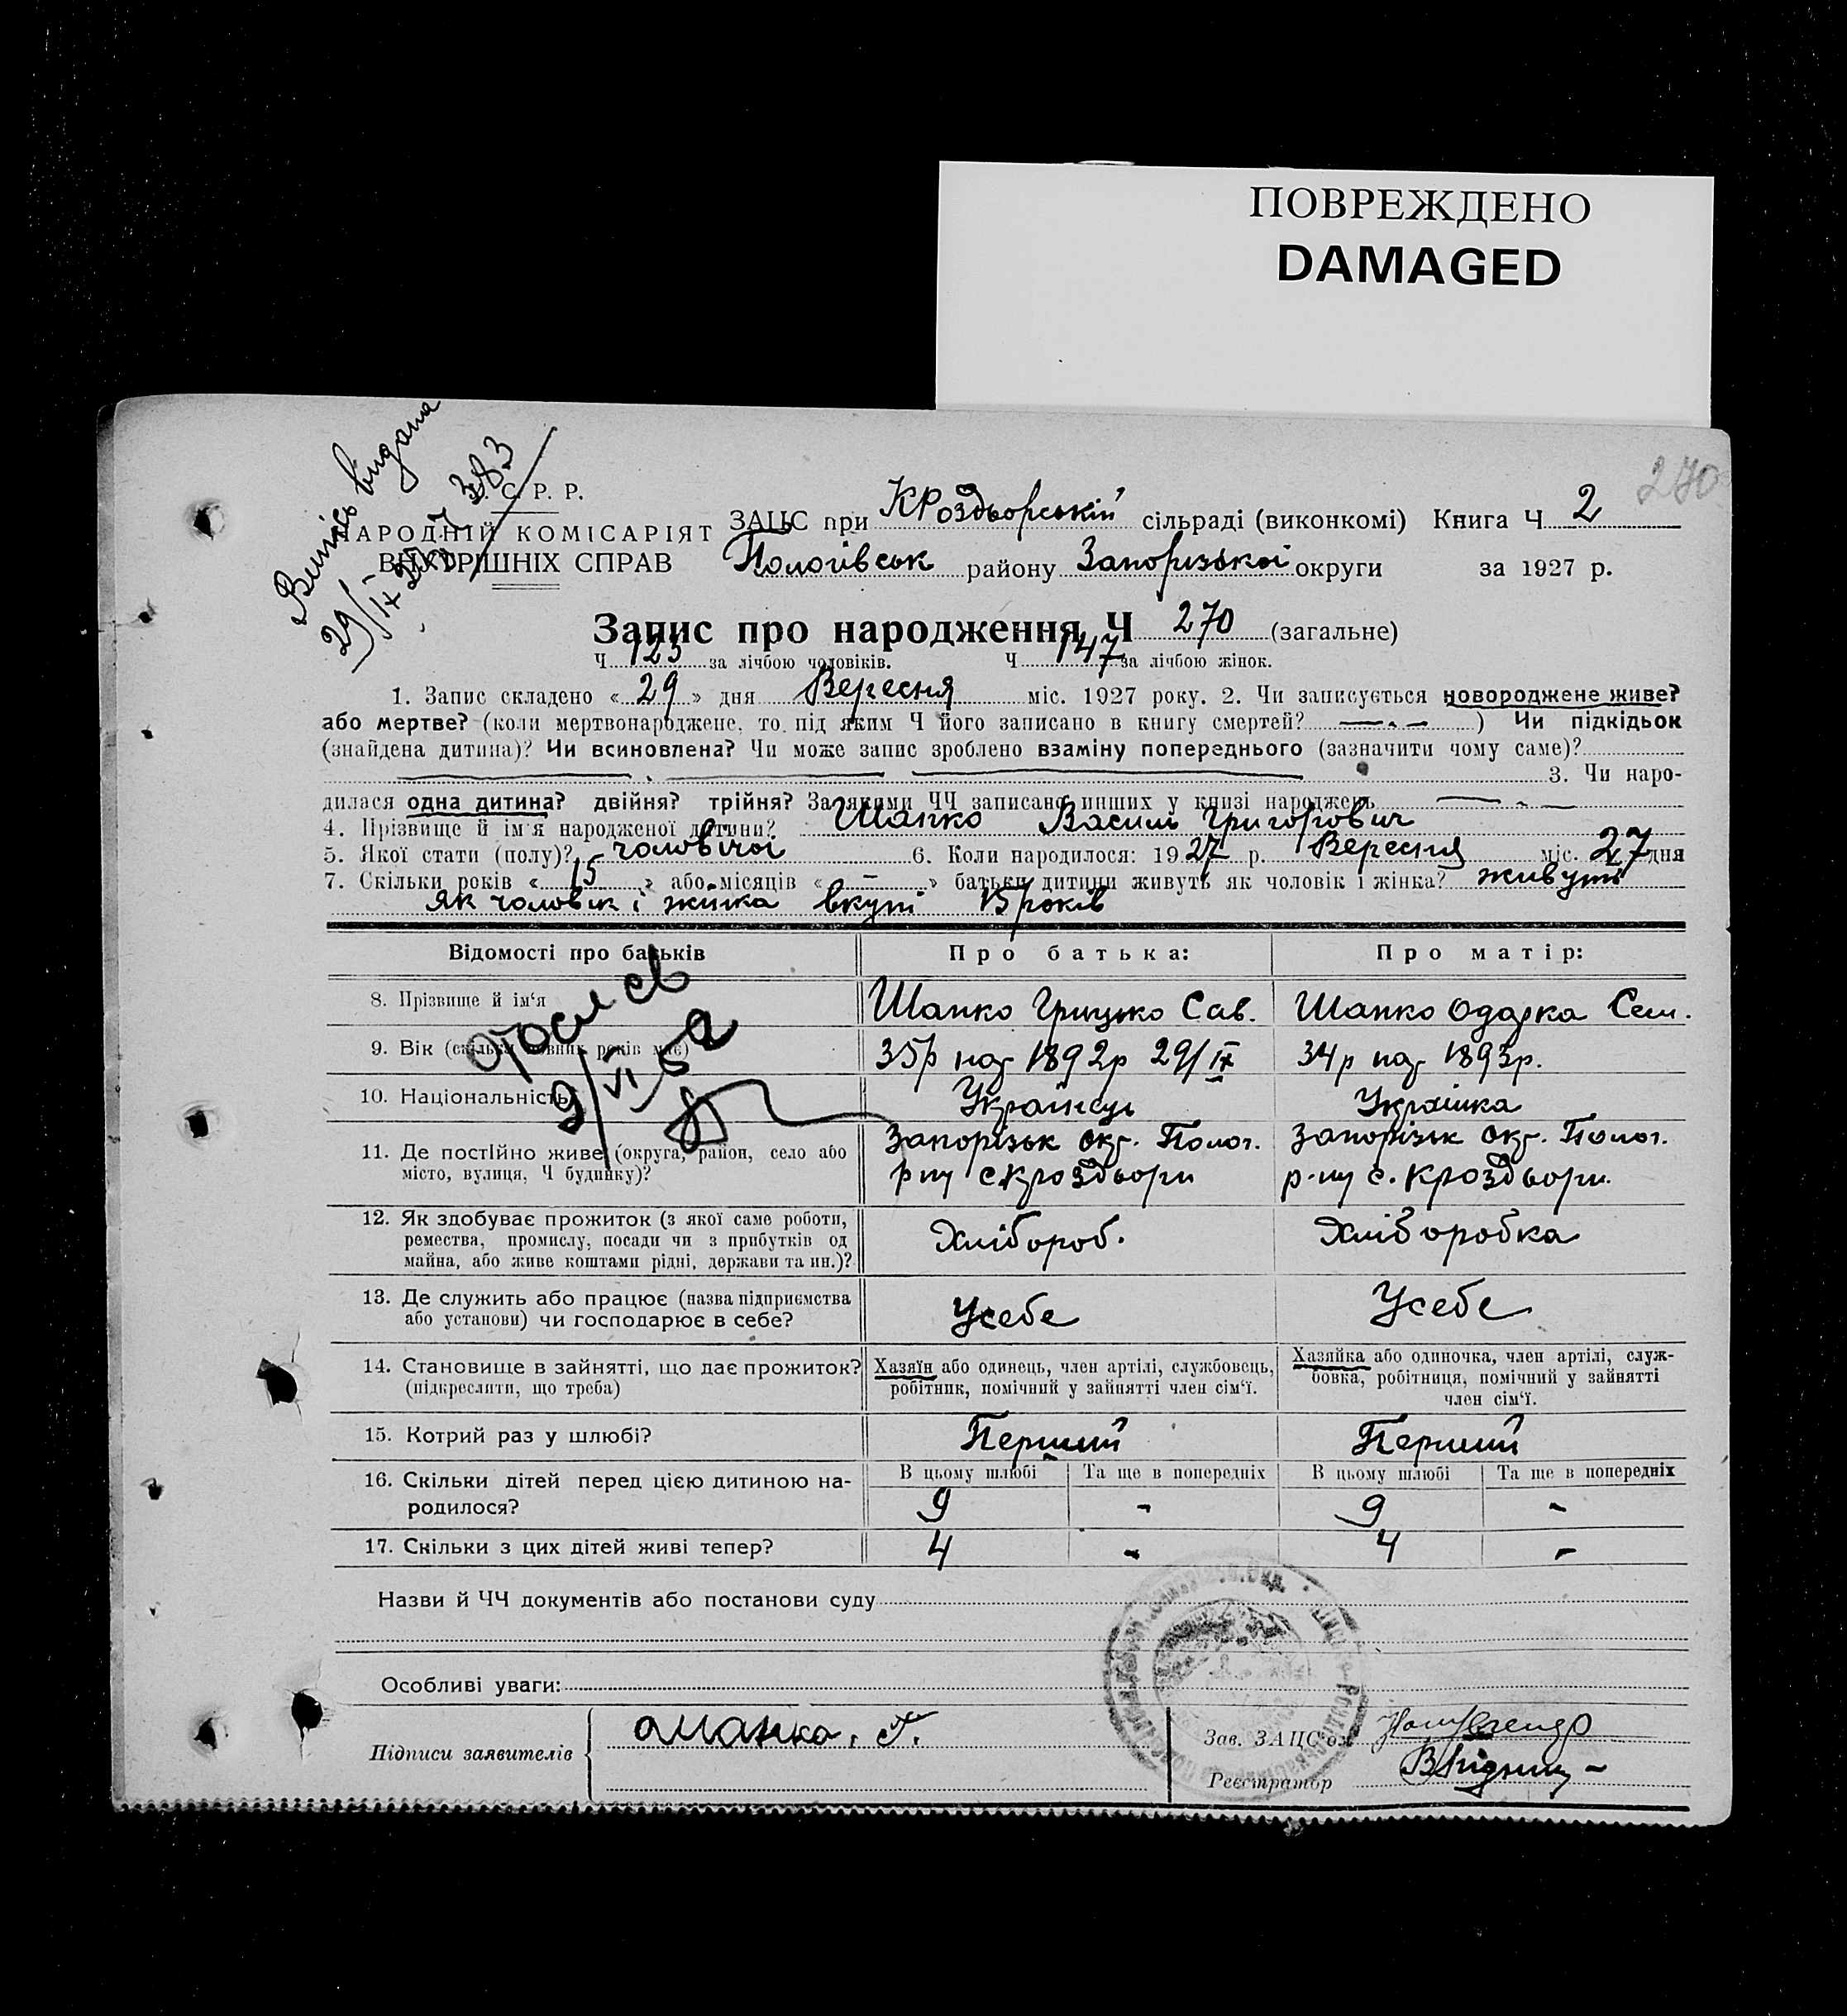 ПОВРЕЖДЕНО
DAMAGED
270
Випись видана
29/IX 27 383
С. Р. Р.
НАРОДНІЙ КОМІСАРІЯТ
ВНУТРІШНІХ СПРАВ
ЗАЦС при КРоздьорській сільраді (виконкомі) Книга Ч 2
Пологівськ району Запорізької округи за 1927 р.
Запис про народження Ч 270 (загальне)
Ч 123 за лічбою чоловіків. Ч 147 за лічбою жінок.
1. Запис складено « 29 » дня Вересня міс. 1927 року. 2. Чи записується новороджене живе?
або мертве? (коли мертвонароджене, то під яким Ч його записано в книгу смертей? —.— ) Чи підкідьок
(знайдена дитина)? Чи всиновлена? Чи може запис зроблено взаміну попереднього (зазначити чому саме)?
3. Чи наро-
дилася одна дитина? двійня? трійня? За якими ЧЧ записано инших у книзі народжень
4. Прізвище й ім'я народженої дитини? Шапко Василь Григорович
5. Якої стати (полу)? чоловічої 6. Коли народилося: 1927 р. Вересня міс. 27 дня
7. Скільки років « 15 » або місяців « – » батьки дитини живуть як чоловік і жінка? живуть
як чоловік і жінка вкупі 15 років
Відомості про батьків Про батька: Про матір:
8. Прізвище й ім‘я Шапко Грицько Сав. Шапко Одарка Сем.
9. Вік (скільки повних років має) 35р нар 1892р 29/IX 34р нар 1893р.
9/VI 52
10. Національність Українець Українка
11. Де постійно живе (округа, район, село або місто, вулиця, Ч будинку)? Запорізьк окр. Полог. Запорізьк окр. Полог.
р-ну с.Кроздьори р-ну с. Кроздьори.
12. Як здобуває прожиток (з якої саме роботи, ремества, промислу, посади чи з прибутків од майна, або живе коштами рідні, держави та ин.)? Хлібороб. Хліборобка
13. Де служить або працює (назва підприємства або установи) чи господарює в себе? Усебе Усебе
14. Становище в зайнятті, що дає прожиток? (підкреслити, що треба) Хазяїн або одинець, член артілі, службовець, робітник, помічний у зайнятті член сім‘ї. Хазяйка або одиночка, член артілі, служ-
бовка, робітниця, помічний у зайнятті
член сім‘ї.
15. Котрий раз у шлюбі? Перший Перший
16. Скільки дітей перед цією дитиною на-
родилося? В цьому шлюбі Та ще в попередніх В цьому шлюбі Та ще в попередніх
9 - 9 -
17. Скільки з цих дітей живі тепер? 4 - 4 -
Назви й ЧЧ документів або постанови суду
Особливі уваги:
Підписи заявителів Шапко. Г.
Зав. ЗАЦС'ом
Реєстратор